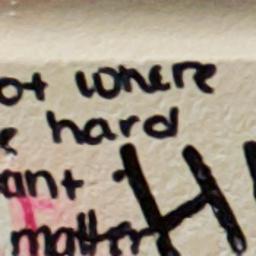 ot where
e hard
ant
matter
H